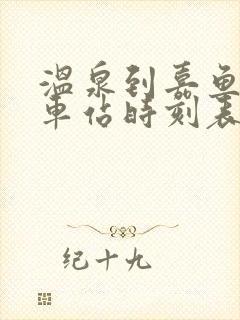 温泉到嘉鱼
车站时刻表
纪十九